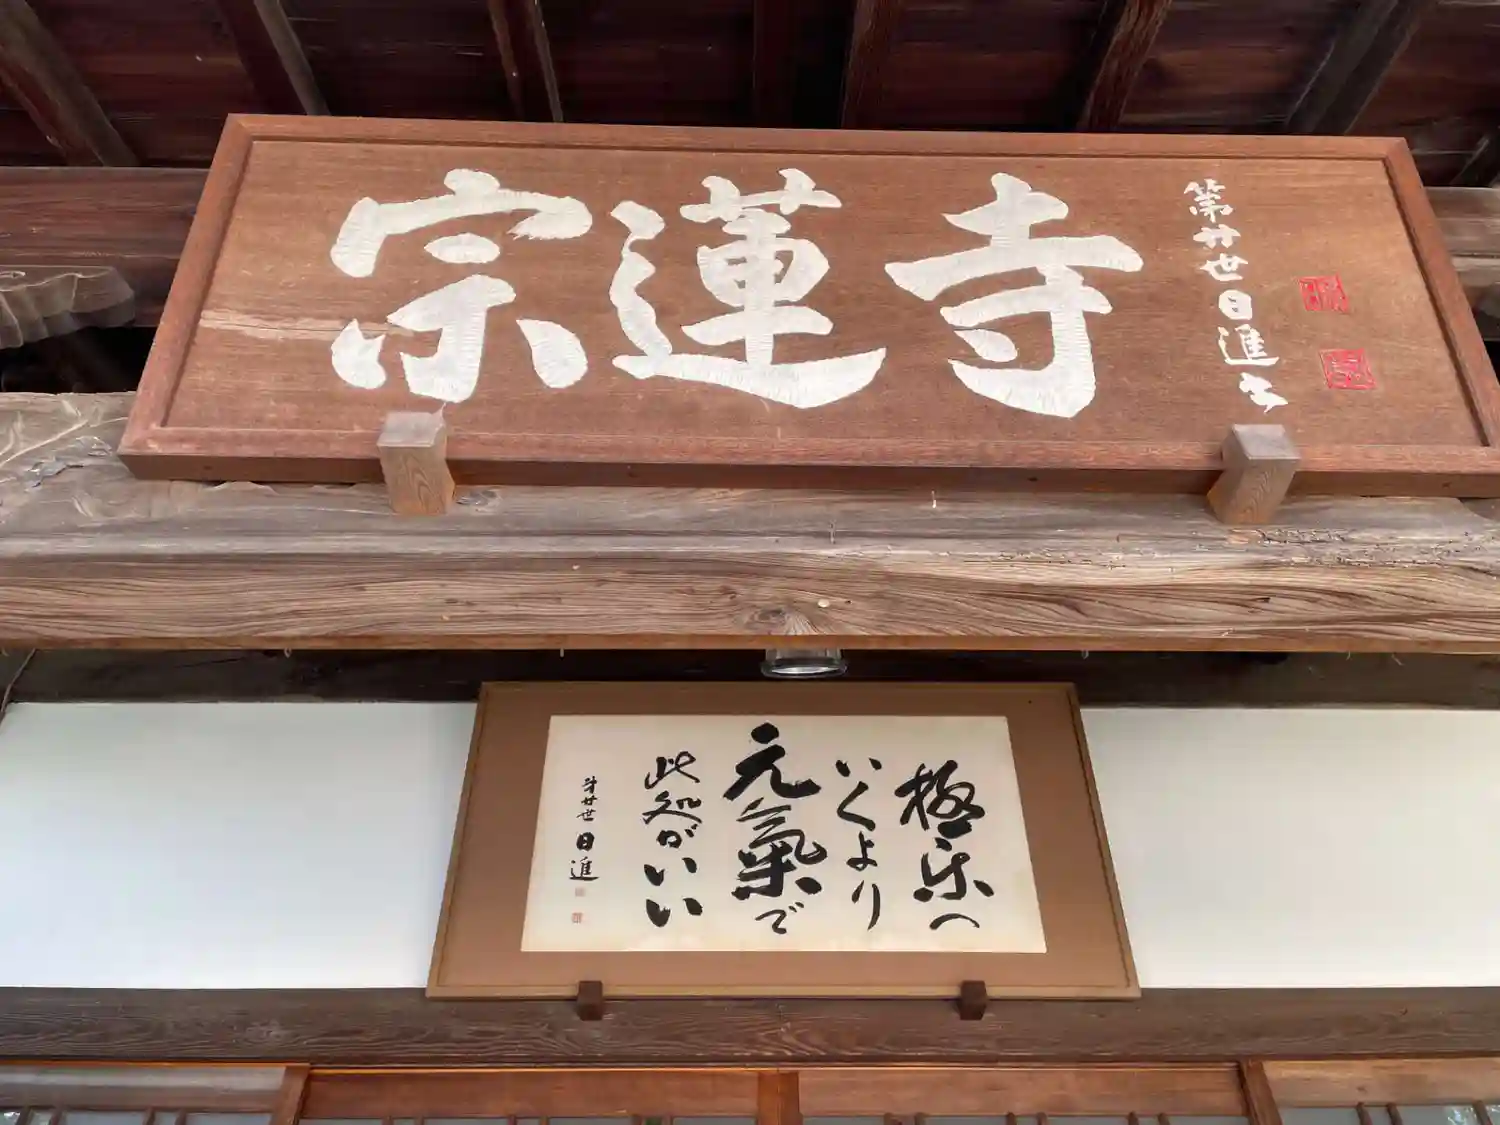 宗蓮寺
第廿世日進
極楽へ
いくより
元氣で
此処がいい
第廿世 日進